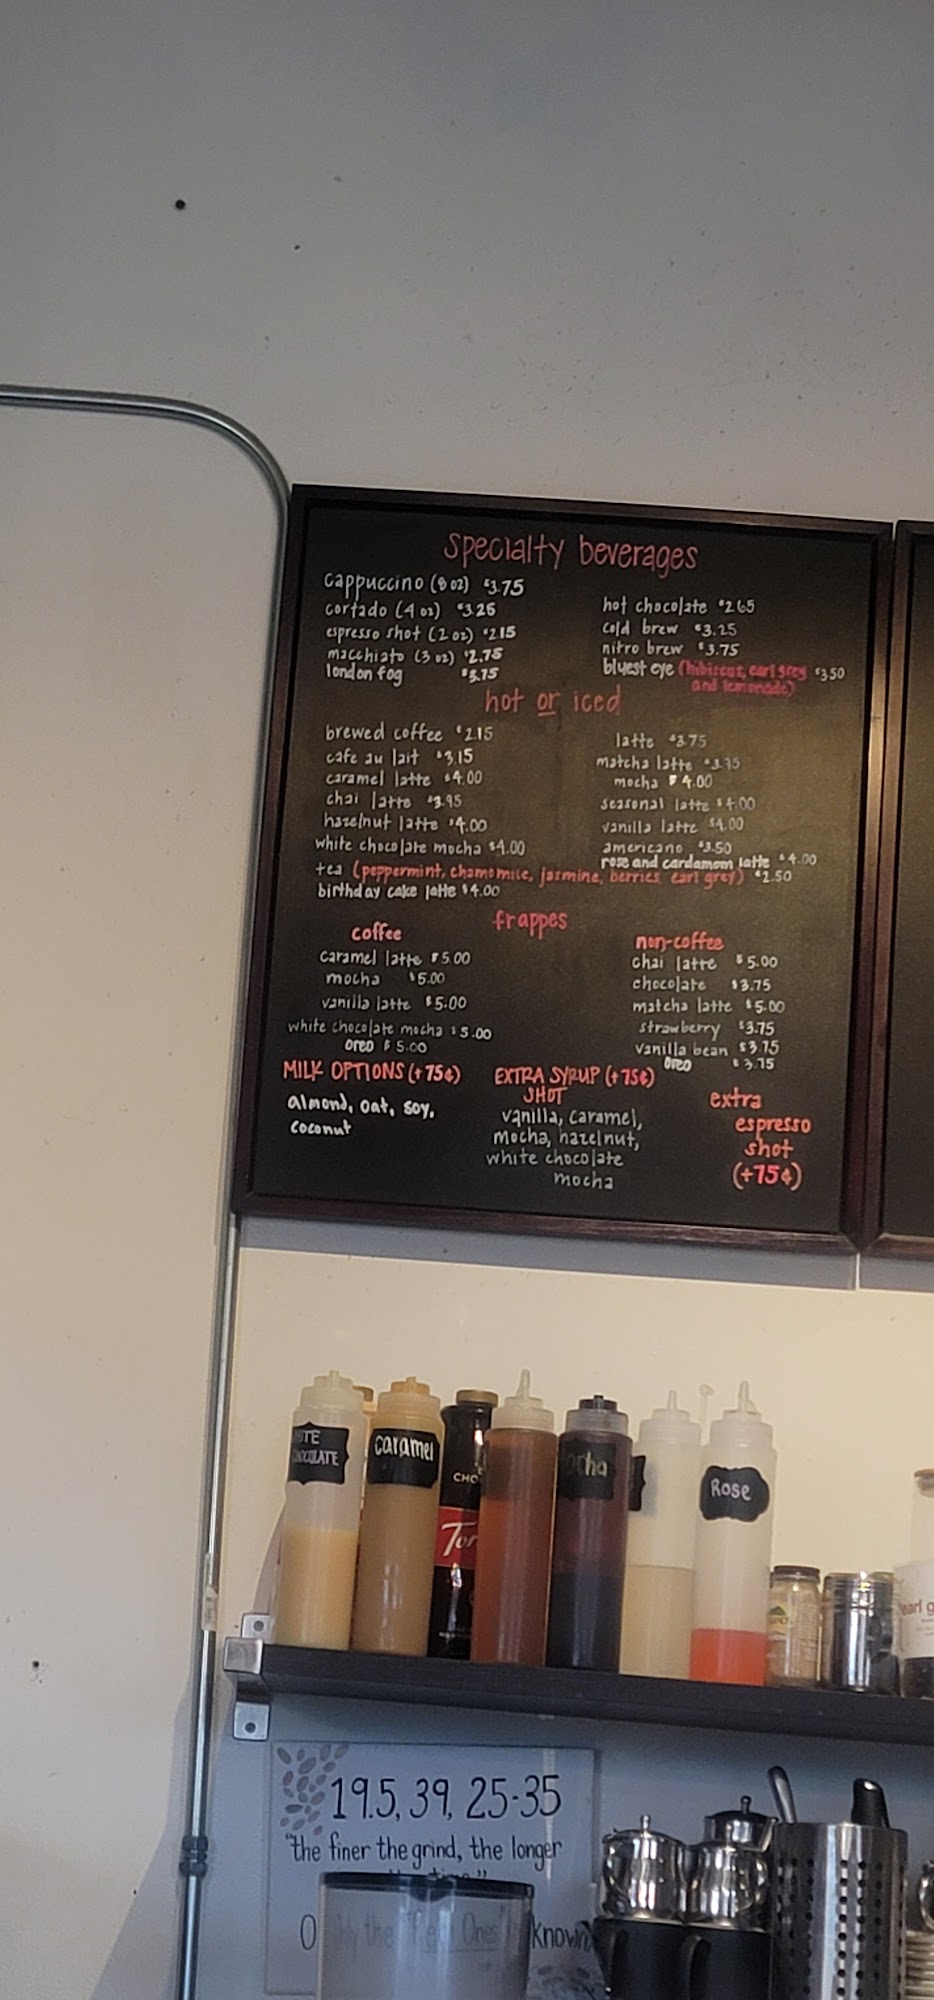 specialty beverages
cappuccino (8 oz) $3.75
cortado (4 oz) $3.25
espresso shot (2 oz) $2.15
macchiato (3 oz) $2.75
london fog $3.75
hot chocolate $2.65
cold brew $3.25
nitro brew $3.75
bluest eye (hibiscus, earl grey $3.50
and lemonade)
hot or iced
brewed coffee $2.15
cafe au lait $3.15
caramel latte $4.00
chai latte $3.95
hazelnut latte $4.00
white chocolate mocha $4.00
latte $3.75
matcha latte
mocha $4.00
seasonal latte $4.00
vanilla latte $4.00
americano $3.50
rose and cardamom latte $4.00
tea (peppermint, chamomile, jasmine, berries, earl grey) $2.50
birthday cake latte $4.00
frappes
coffee
caramel latte $5.00
mocha $5.00
vanilla latte $5.00
white chocolate mocha $5.00
oreo $5.00
non-coffee
chai latte $5.00
chocolate $3.75
matcha latte $5.00
strawberry $3.75
vanilla bean $3.75
oreo $3.75
MILK OPTIONS (+75¢)
almond, oat, soy,
coconut
EXTRA SYRUP (+75¢)
SHOT
vanilla, caramel,
mocha, hazelnut,
white chocolate
mocha
extra
espresso
shot
(+75¢)
CHOCOLATE
caramel
Rose
19.5, 39, 25-35
"the finer the grind, the longer
known